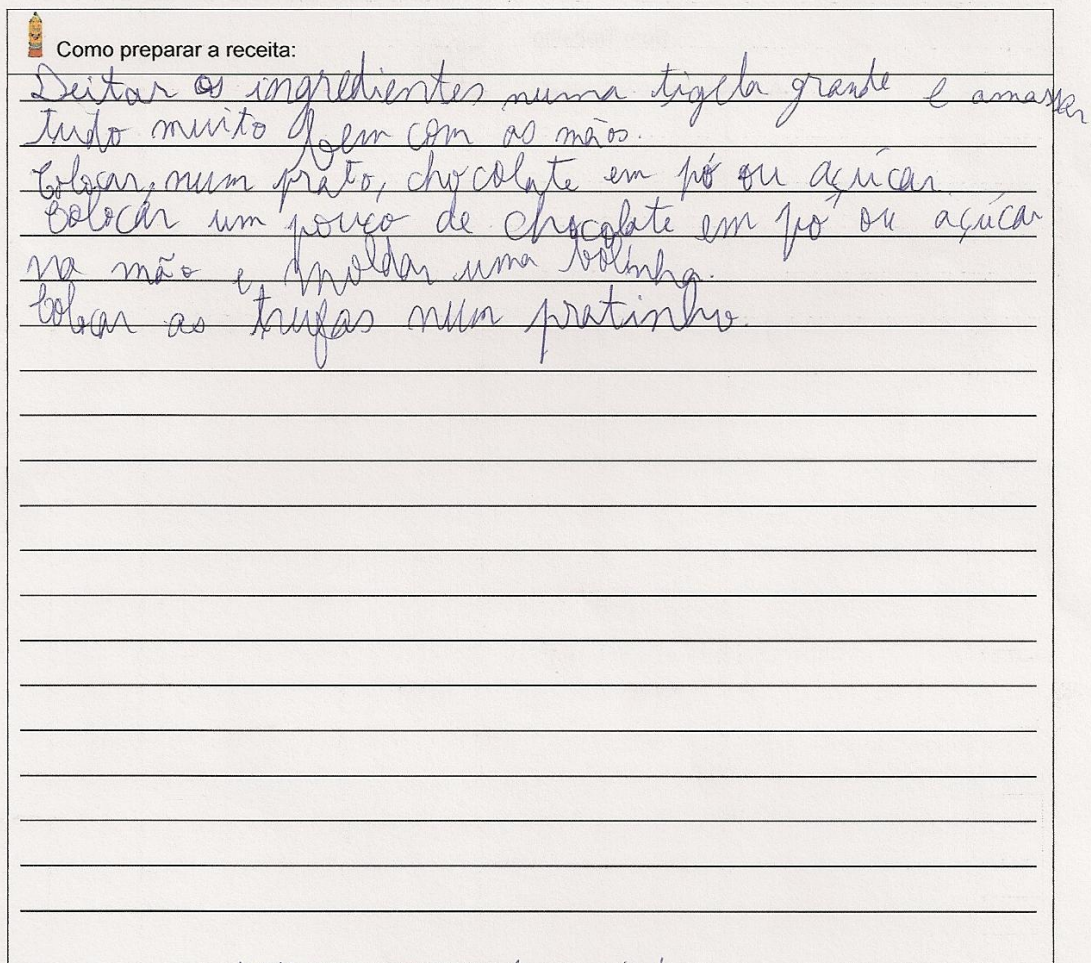 Como preparar a receita:
Deitar os ingredientes numa tigela grande e amassar
tudo muito bem com as mãos.
Colocar, num prato, chocolate em pó ou açúcar.
Colocar um pouco de chocolate em pó ou açúcar
na mão e moldar uma bolinha.
Colocar as trufas num pratinho.